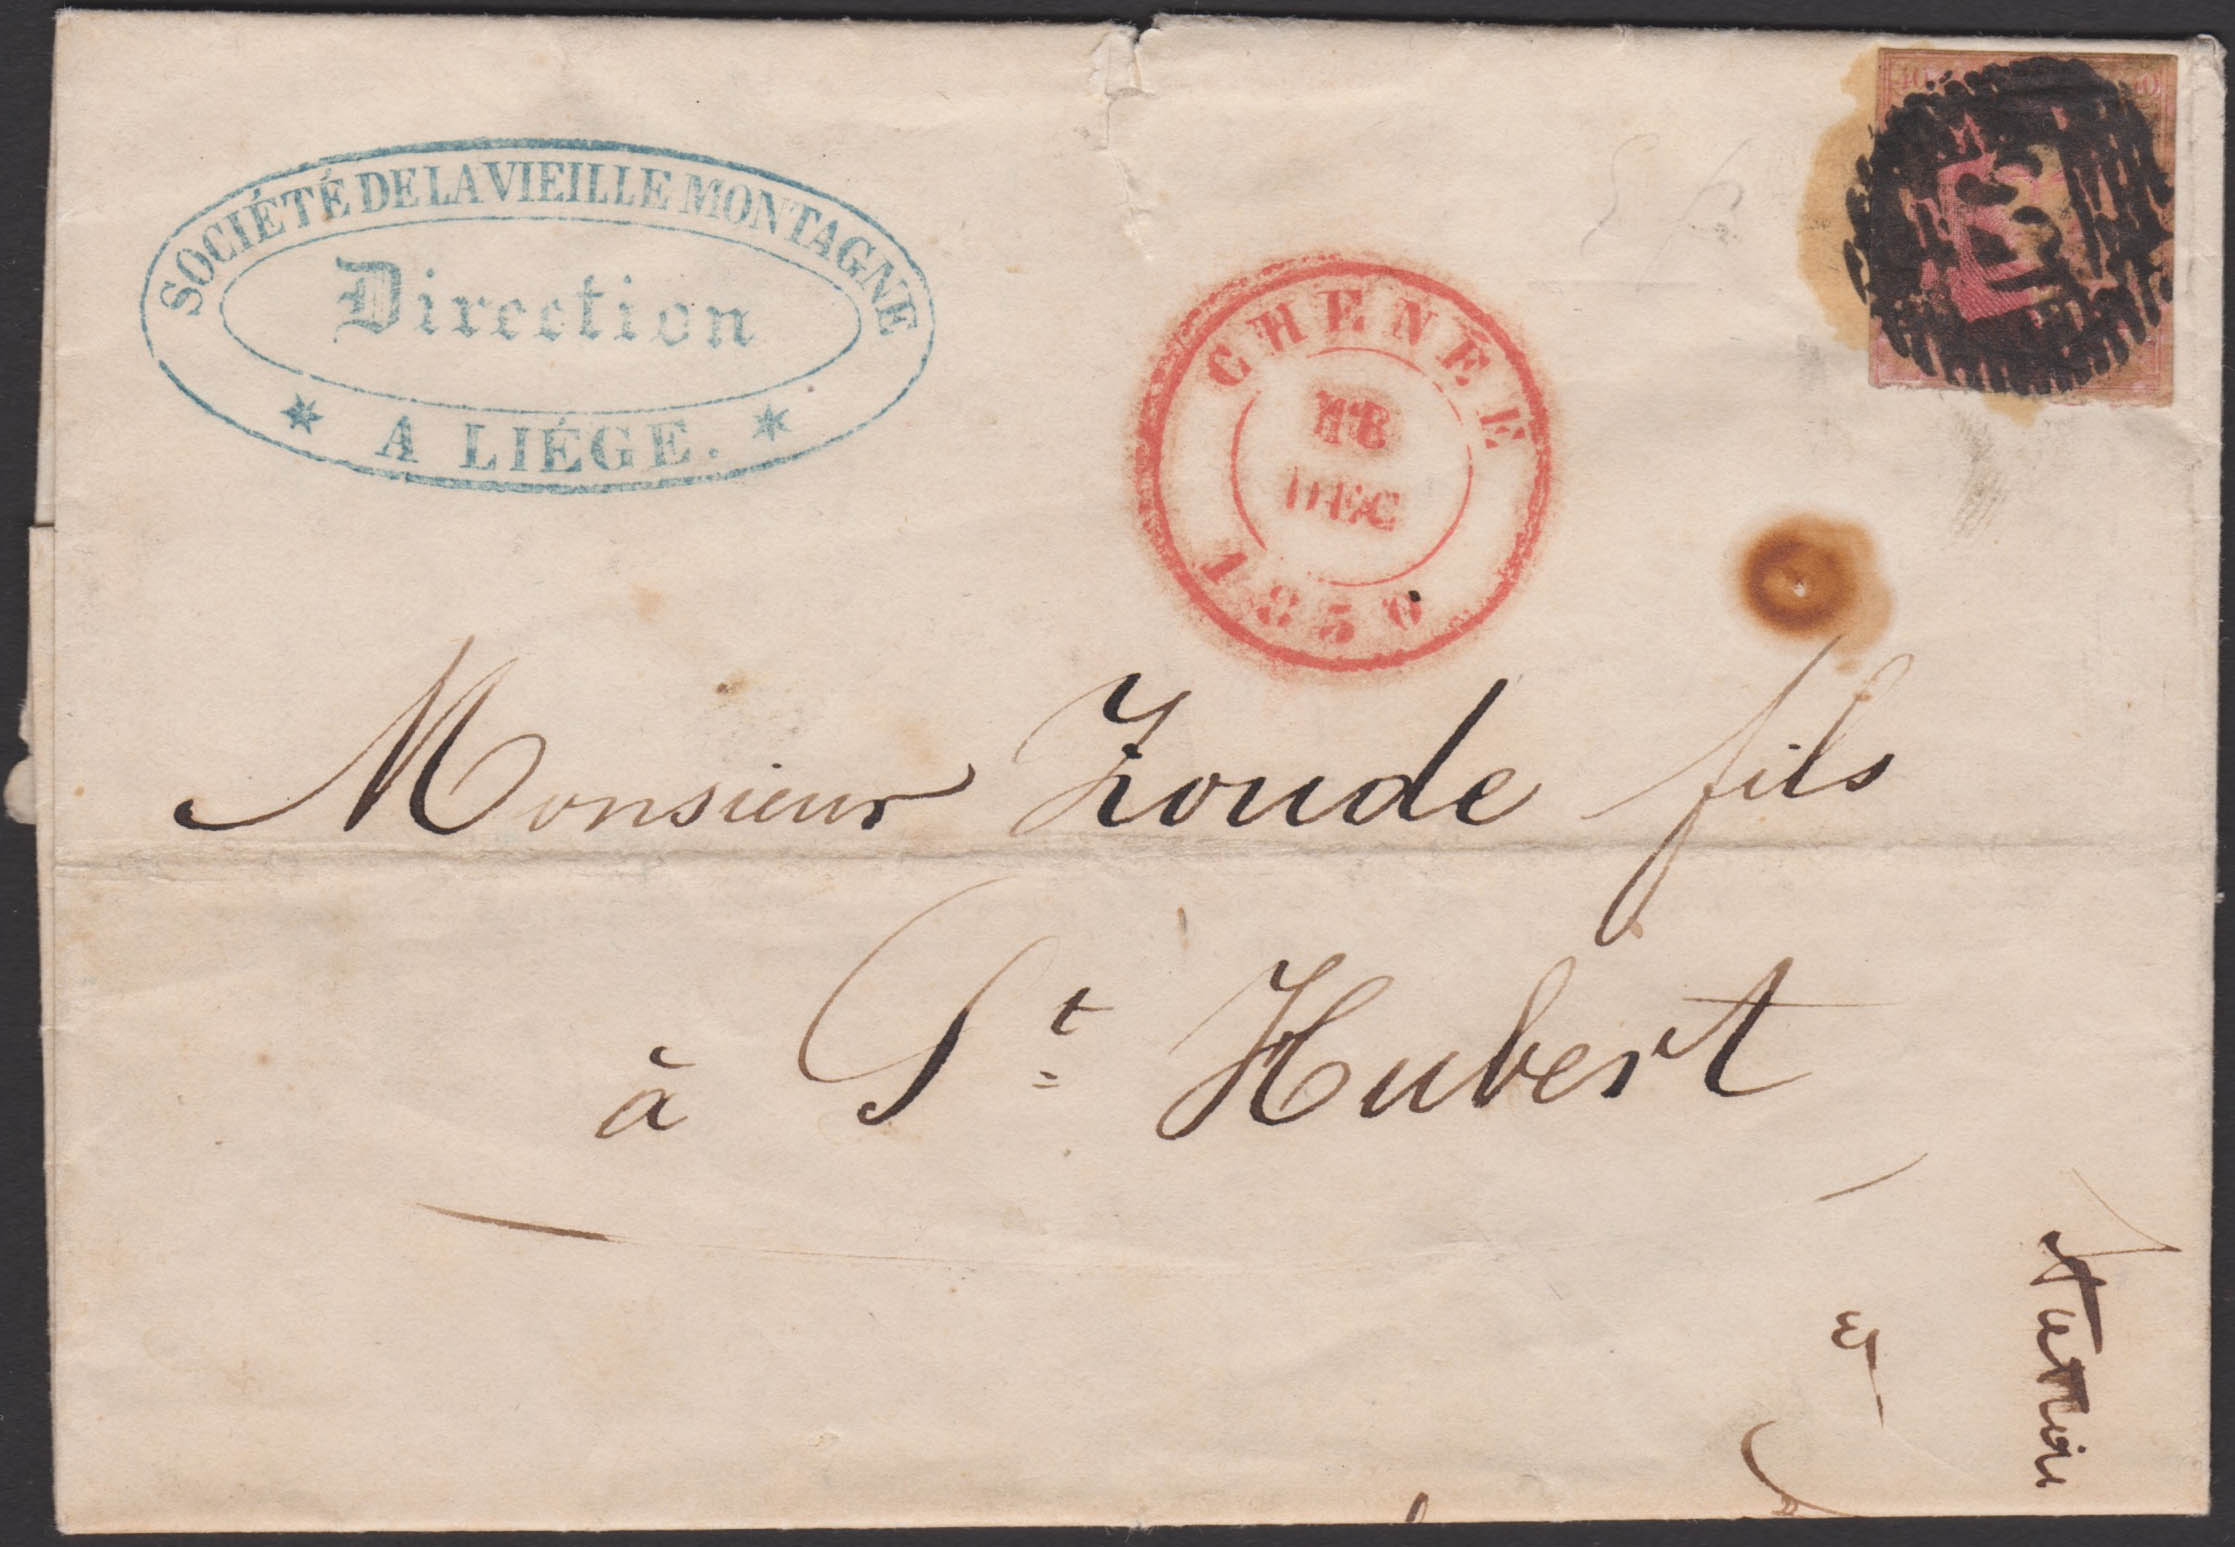 SOCIÉTÉ DE LA VIEILLE MONTAGNE
Direction
* A LIÉGE. *
CHENÉE
DEC
1850
40
Monsieur Zoude fils
à St Hubert